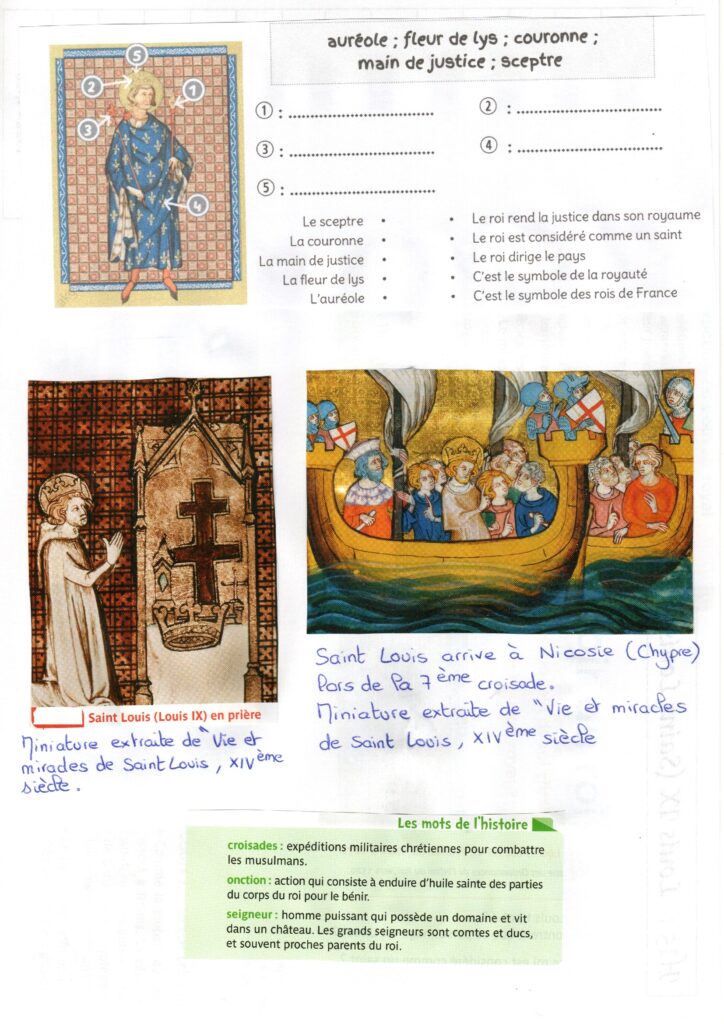 auréole ; fleur de lys ; couronne ;
main de justice ; sceptre
5
2
1
3
4
① : ..........................................
② : ..........................................
③ : ..........................................
④ : ..........................................
⑤ : ..........................................
Le sceptre •
La couronne •
La main de justice •
La fleur de lys •
L'auréole •
• Le roi rend la justice dans son royaume
• Le roi est considéré comme un saint
• Le roi dirige le pays
• C'est le symbole de la royauté
• C'est le symbole des rois de France
Saint Louis (Louis IX) en prière
Miniature extraite de "Vie et
miracles de Saint Louis, XIVème
siècle.
Saint Louis arrive à Nicosie (Chypre)
lors de la 7ème croisade.
Miniature extraite de "Vie et miracles
de Saint Louis, XIVème siècle
Les mots de l'histoire
croisades : expéditions militaires chrétiennes pour combattre
les musulmans.
onction : action qui consiste à enduire d'huile sainte des parties
du corps du roi pour le bénir.
seigneur : homme puissant qui possède un domaine et vit
dans un château. Les grands seigneurs sont comtes et ducs,
et souvent proches parents du roi.